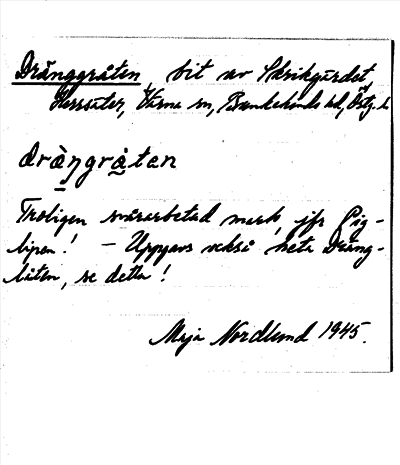 Dränggråten, bit av Skrikgärdet,
Herrsäter, Värna sn, Bankekinds hd, Östg. l.
dràŋgrå̀tən
Troligen svårarbetad mark, jfr Pig-
lipen! – Uppgavs också heta Dräng-
låten, se detta!
Maja Nordlund 1945.